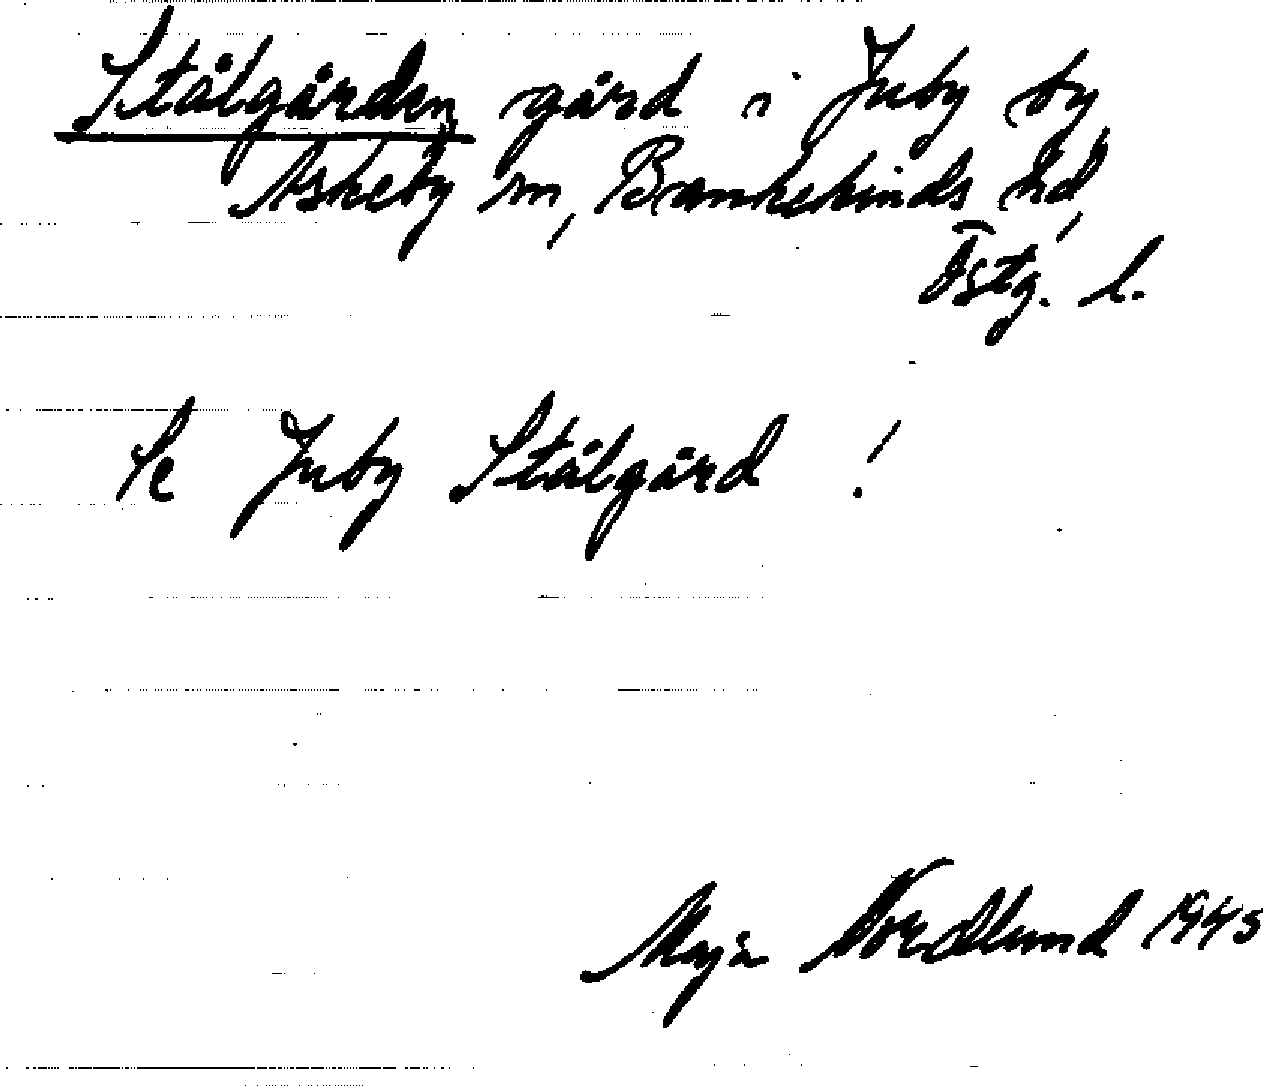 Stålgården, gård i Juby by,
Askeby sn, Bankekinds hd,
Östg. l.
Se Juby Stålgård !
Maja Nordlund 1945